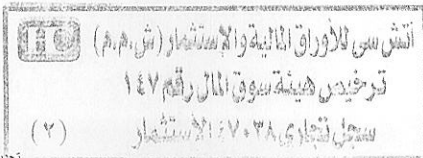 اتش سى للأوراق المالية والإستثمار (ش.م.م)
ترخيص هيئة سوق المال رقم ١٤٧
سجل تجارى ٤٧٠٣٨ الاستثمار (٢)